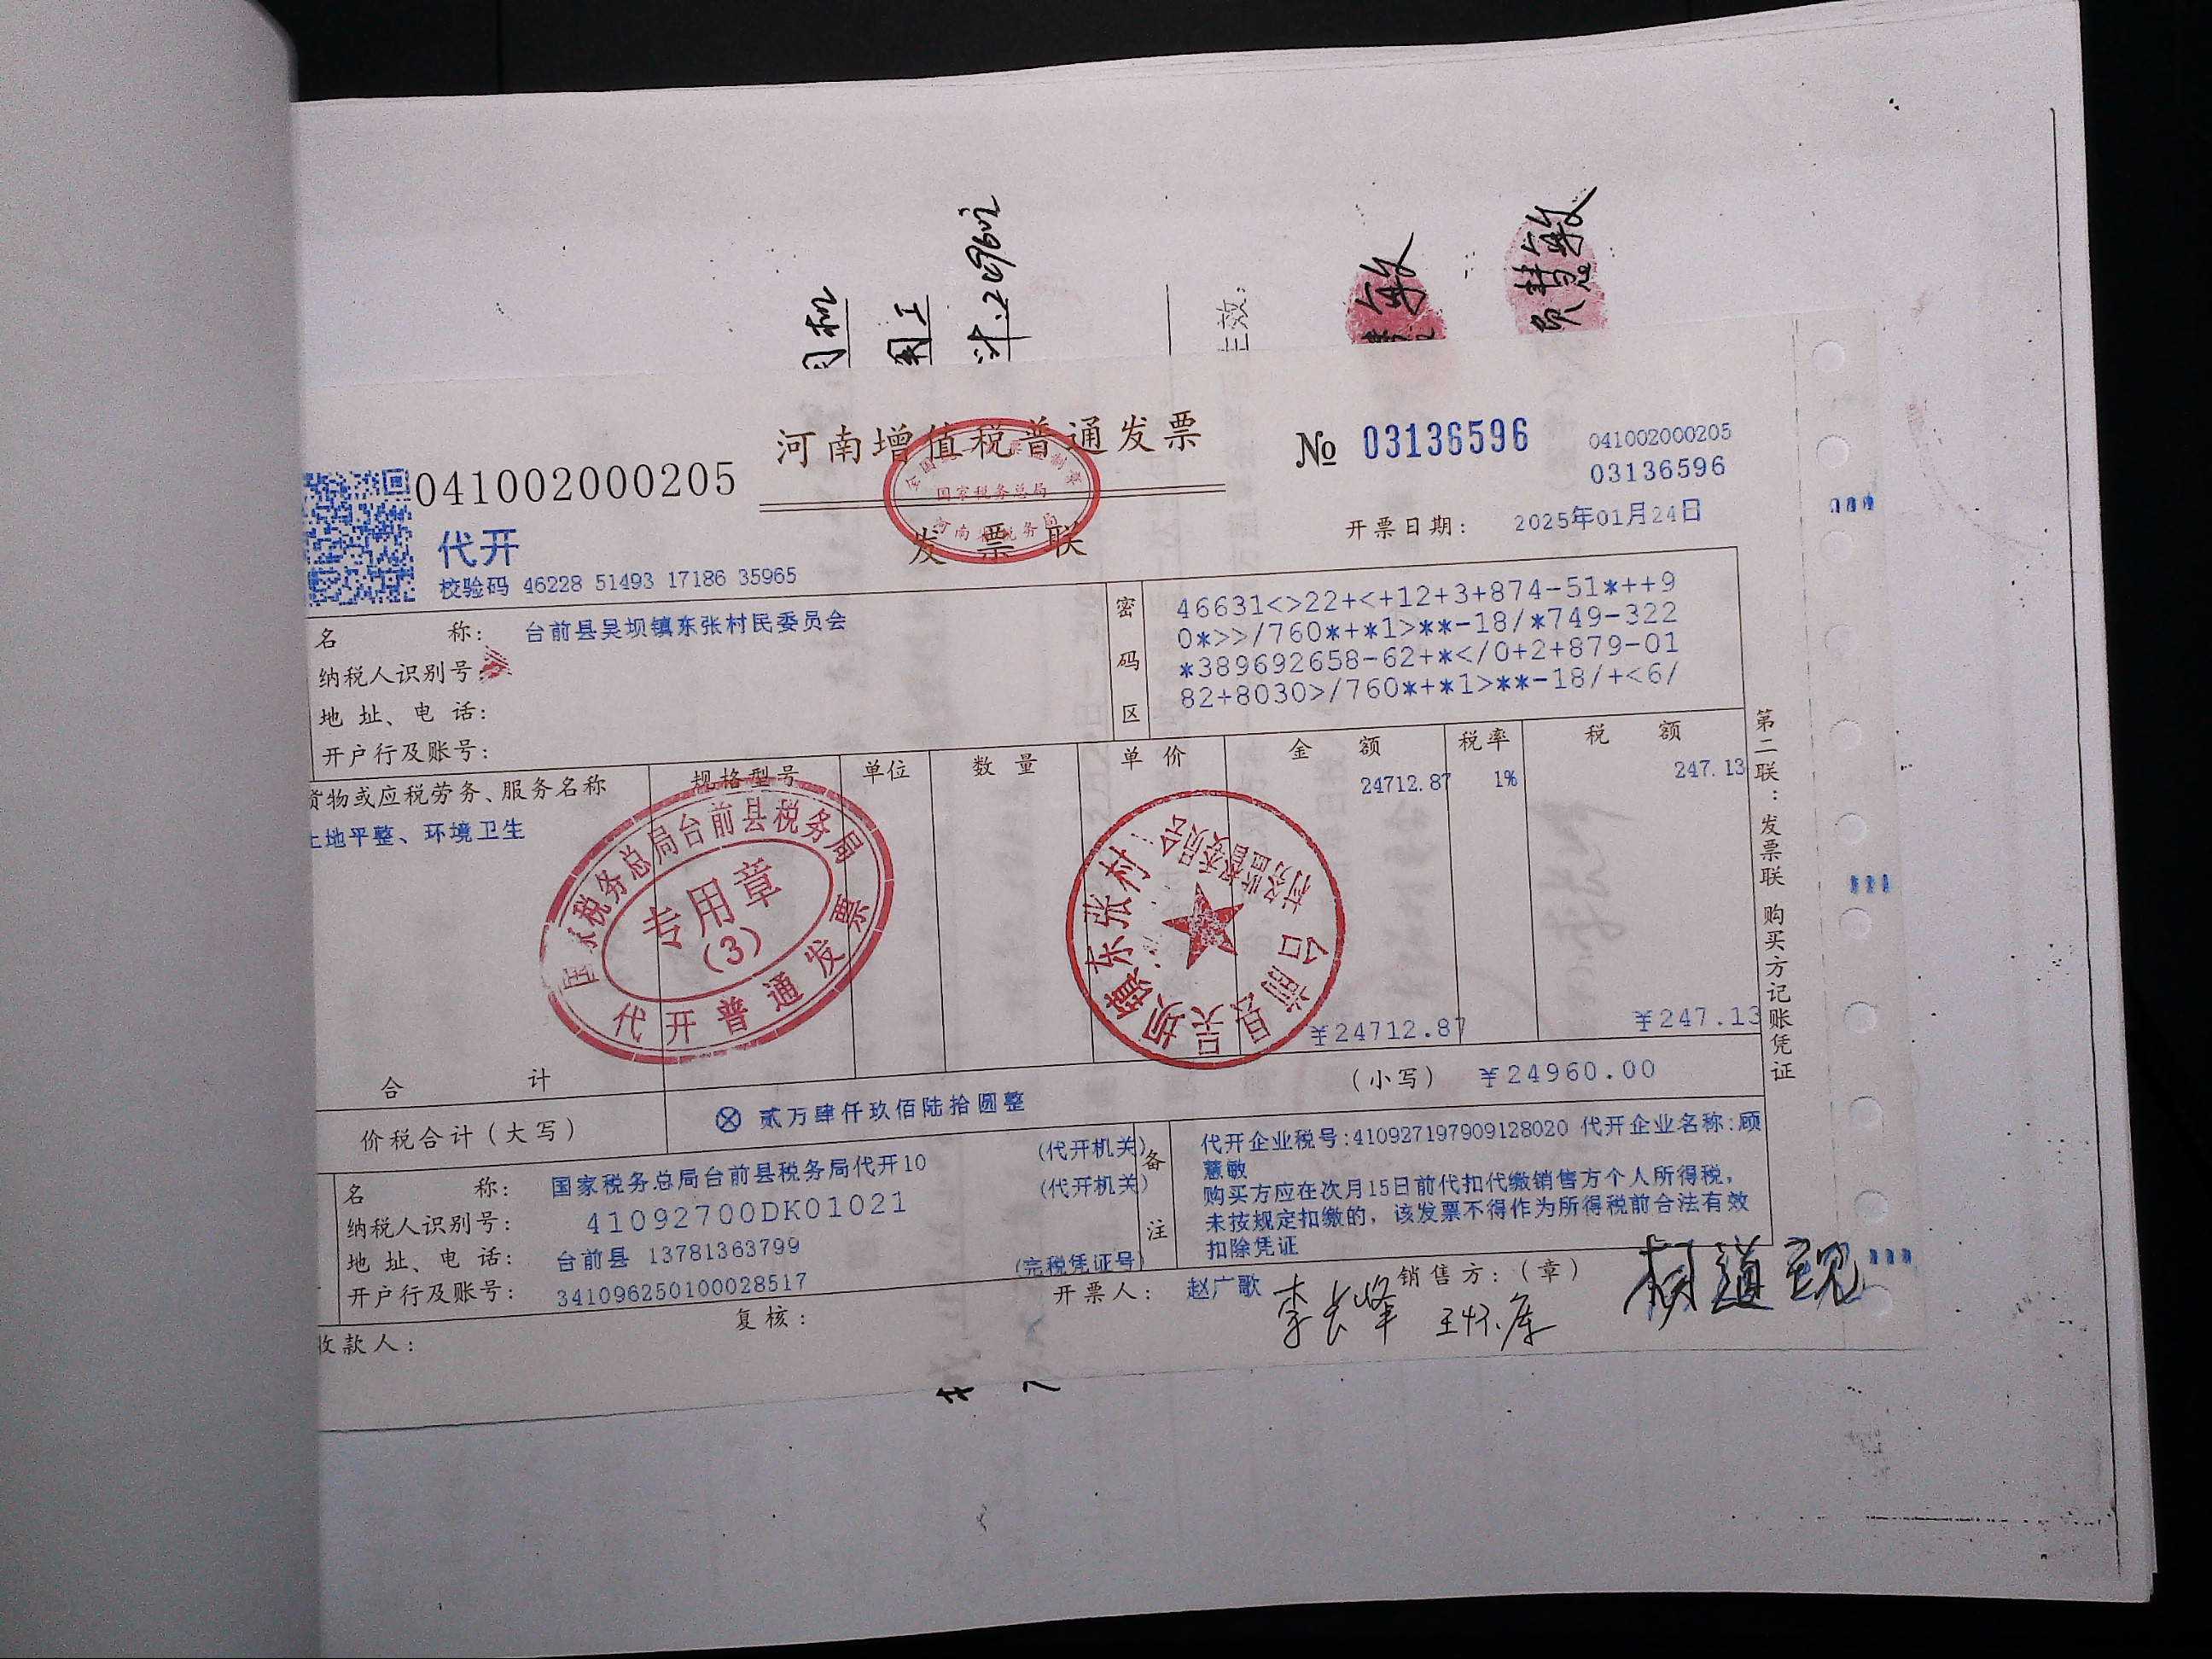 河南增值税普通发票
No 03136596
041002000205
03136596
041002000205
代开
发票联
国家税务总局
开票日期： 2025年01月24日
校验码 46228 51493 17186 35965
名 称： 台前县吴坝镇东张村民委员会
纳税人识别号：
地址、电话：
开户行及账号：
密码区
46631<>22+<+12+3+874-51*++9
0*>>/760*+*1>**-18/*749-322
*389692658-62+*</0+2+879-01
82+8030>/760*+*1>**-18/+<6/
货物或应税劳务、服务名称 规格型号 单位 数量 单价 金额 税率 税额
土地平整、环境卫生 24712.87 1% 247.13
国家税务总局台前县税务局
专用章
(3)
代开普通发票
台前县吴坝镇东张村
村务监督委员会
合 计 ¥24712.87 ¥247.13
价税合计（大写） ⊗ 贰万肆仟玖佰陆拾圆整 （小写） ¥24960.00
名 称： 国家税务总局台前县税务局代开10 (代开机关)
纳税人识别号： 41092700DK01021 (代开机关)
地址、电话： 台前县 13781363799
开户行及账号： 341096250100028517 (完税凭证号)
备注
代开企业税号:410927197909128020 代开企业名称:顾
慧敏
购买方应在次月15日前代扣代缴销售方个人所得税，
未按规定扣缴的，该发票不得作为所得税前合法有效
扣除凭证
收款人： 复核： 开票人： 赵广歌 销售方：（章）
李长峰
第二联：发票联 购买方记账凭证